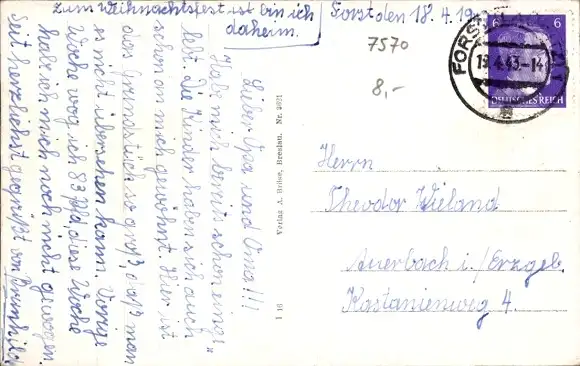 zum Weihnachtsfest ist bin ich
daheim.
Forst den 18.4.19
Lieber Opa und Oma!!!
Habe mich bereits schon einge„
lebt. Die Kinder haben sich auch
schon an mich gewöhnt. Hier ist
das Grundstück so groß, daß man
es nicht übersehen kann. Vorige
Woche wog ich 83 Pfd, diese Woche
hab ich mich noch nicht gewogen.
Seit herzlichst gegrüßt von Brunhilde
Verlag A. Breslau. Nr. 2021
I 16
7570
8,-
FORST (LAUSITZ)
19.4.43-14
6 6
DEUTSCHES REICH
Herrn
Theodor Wieland
Auerbach i./Erzgeb.
Kastanienweg 4.